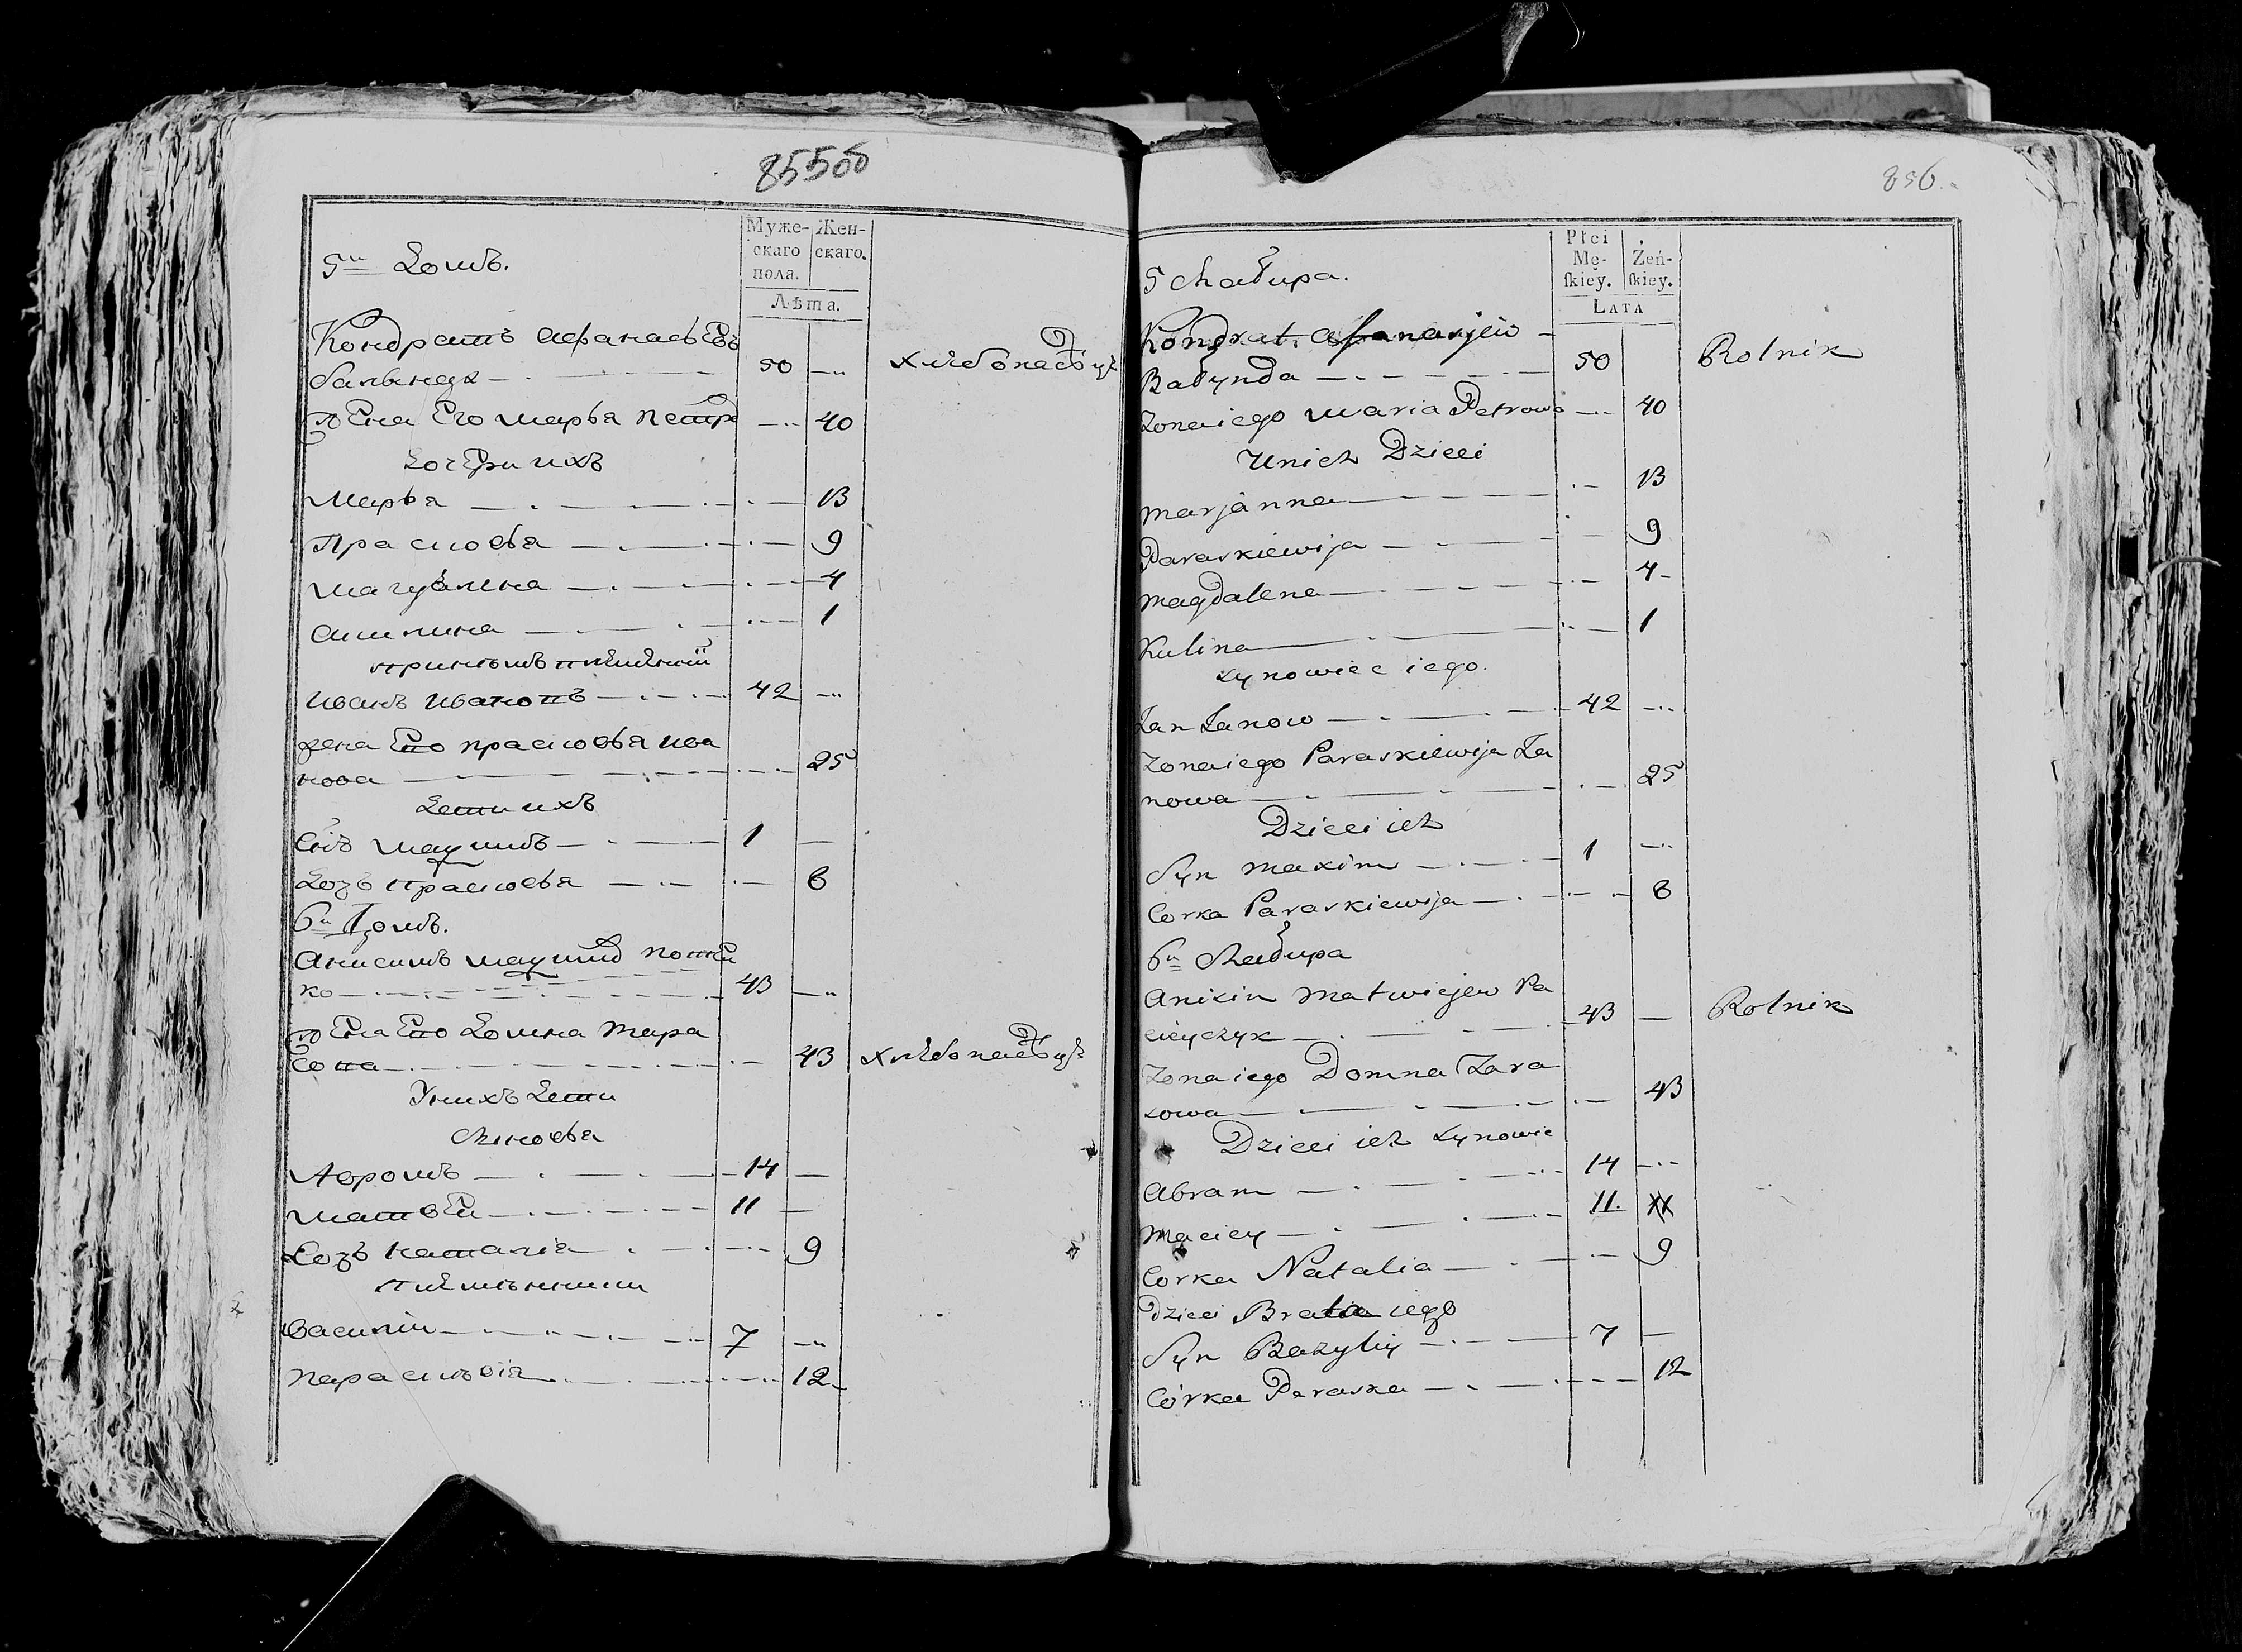 855об
Муже-
скаго
пола.
Жен-
скаго.
Лѣта.
5й Домъ.
Кондратъ Афанасьевъ
50 хлебопашецъ
жена Его Марья Петро 40
дочери ихъ
Марья 13
Прасковья 9
Магдалена 4
Акилина 1
Иванъ Ивановъ 42
жена Его Прасковья Ива
нова 25
Дети ихъ
Снъ Мацимъ 1
Дочь Прасковья 8
6й Домъ.
Анисимъ
ко 43
жена Его Домна Тара
сова 43 хлебопашецъ
У нихъ Дети
Сыновья
Абрамъ 14
Матвей 11
Дочь Наталія 9
племянники
Василій 7
Парасковія 12
856
Płci
Mę-
ſkiey.
Żeń-
ſkiey.
LATA
5 Chałupa.
Kondrat Afanasjew
Bałynda 50 Rolnik
Zona iego Maria Petrowa 40
U nich Dzieci
Marjanna 13
Paraskiewija 9
Magdalena 4
Kulina 1
Synowiec iego.
Jan Janow 42
Zona iego Paraskiewija Ja
nowa 25
Dzieci ich
Syn Maxim 1
Corka Paraskiewija 8
6й Chałupa
Anisim Matwiejew Pa
43 Rolnik
Zona iego Domna Tara
sowa 43
Dzieci ich Synowie
Abram 14
Maciey 11.
Corka Natalia 9
Dzieci Brata iego
Syn Bazyliy 7
Córka Paraska 12